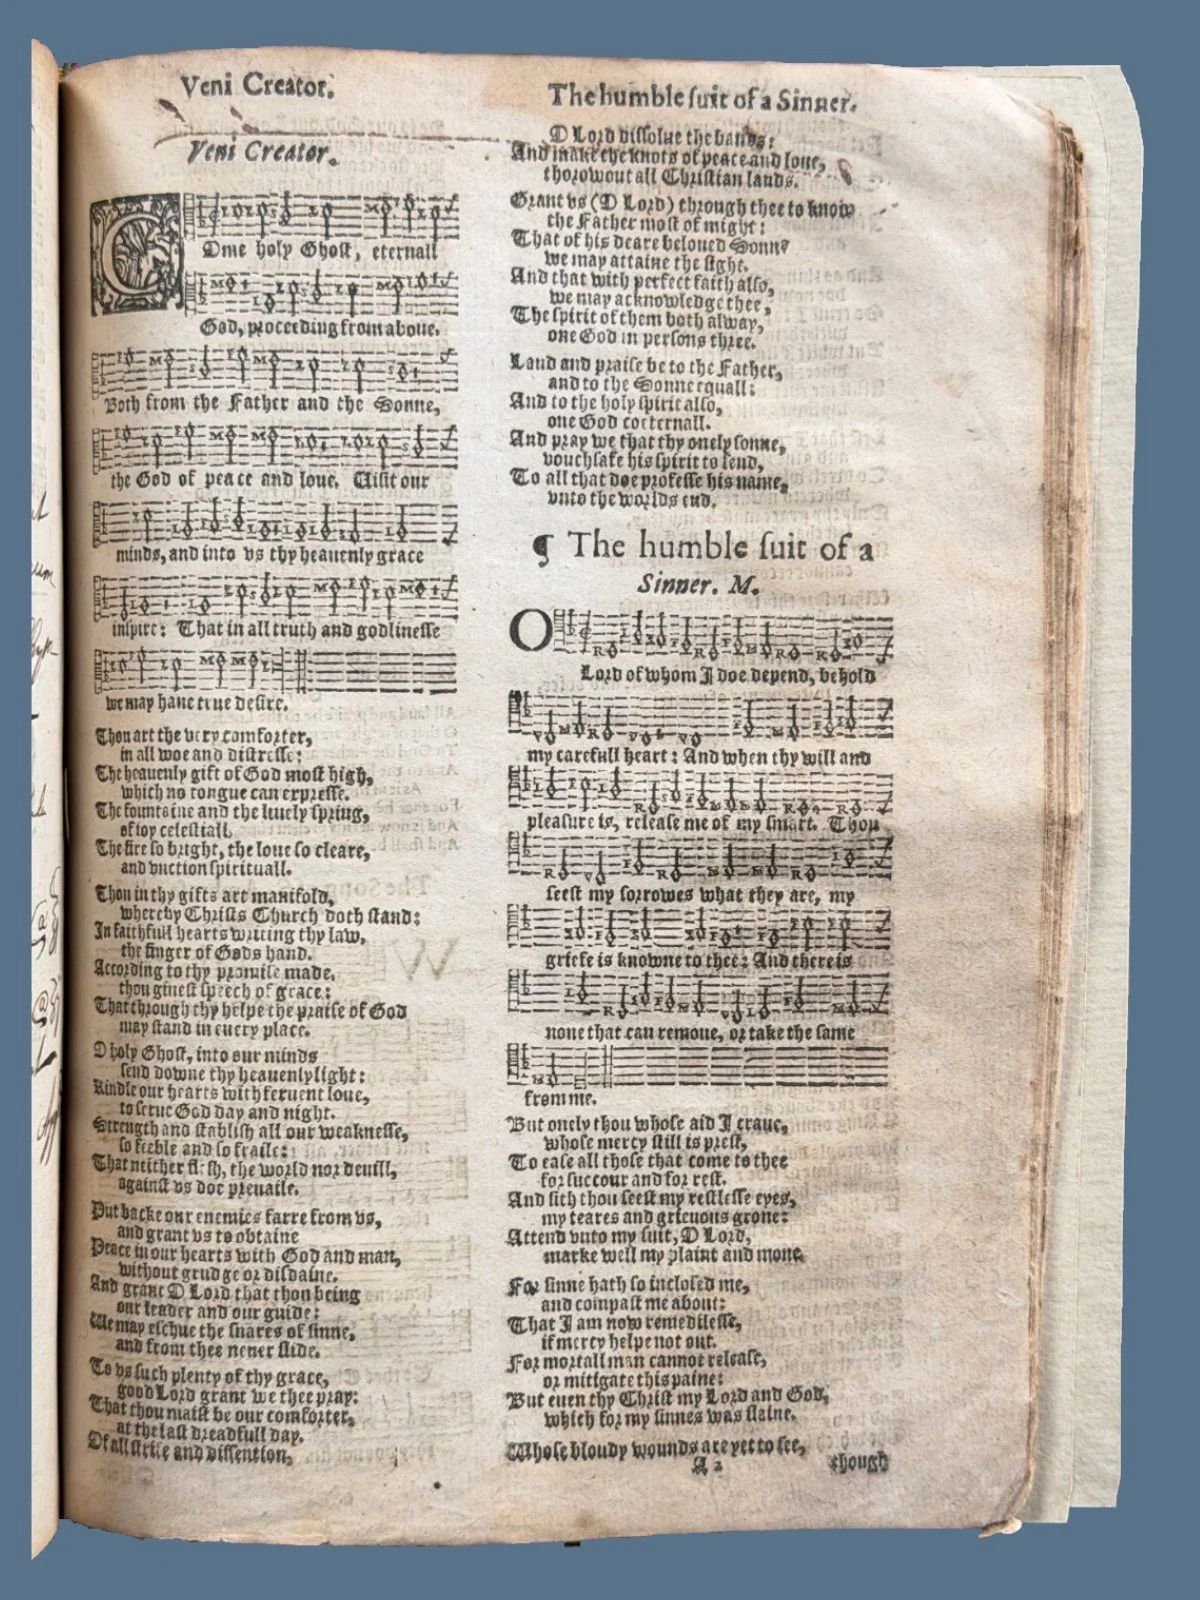 Veni Creator.
Veni Creator.
COme holy Ghost, eternall
God, proceeding from aboue.
Both from the Father and the Sonne,
the God of peace and loue. Uisit our
minds, and into vs thy heauenly grace
inspire: That in all truth and godlinesse
we may haue true desire.
Thou art the very comforter,
in all woe and distresse:
The heauenly gift of God most high,
which no tongue can expresse.
The fountaine and the liuely spring,
of ioy celestiall,
The fire so bright, the loue so cleare,
and vnction spirituall.
Thou in thy gifts art manifold,
whereby Christs Church doth stand:
In faithfull hearts writing thy law,
the finger of Gods hand.
According to thy promise made,
thou giuest speech of grace:
That through thy helpe the praise of God
may stand in euery place.
O holy Ghost, into our minds
send downe thy heauenly light:
Kindle our hearts with feruent loue,
to serue God day and night.
Strength and stablish all our weaknesse,
so feeble and so fraile:
That neither flesh, the world nor deuill,
against vs doe preuaile.
Put backe our enemies farre from vs,
and grant vs to obtaine
Peace in our hearts with God and man,
without grudge or disdaine.
And grant O Lord that thou being
our leader and our guide:
We may eschue the snares of sinne,
and from thee neuer slide.
To vs such plenty of thy grace,
good Lord grant we thee pray:
That thou maist be our comforter,
at the last dreadfull day.
Of all strife and dissention,
The humble suit of a Sinner.
O Lord dissolue the bands:
And make the knots of peace and loue,
thorowout all Christian lands.
Grant vs (O Lord) through thee to know
the Father most of might:
That of his deare beloued Sonne
we may attaine the sight.
And that with perfect faith also,
we may acknowledge thee,
The spirit of them both alway,
one God in persons three.
Laud and praise be to the Father,
and to the Sonne equall:
And to the holy spirit also,
one God coeternall.
And pray we that thy onely sonne,
vouchsafe his spirit to send,
To all that doe professe his name,
vnto the worlds end.
¶ The humble suit of a
Sinner. M.
O Lord of whom I doe depend, behold
my carefull heart: And when thy will and
pleasure is, release me of my smart. Thou
seest my sorrowes what they are, my
griefe is knowne to thee: And there is
none that can remoue, or take the same
from me.
But onely thou whose aid I craue,
whose mercy still is prest,
To ease all those that come to thee
for succour and for rest.
And sith thou seest my restlesse eyes,
my teares and grieuous grone:
Attend vnto my suit, O Lord,
marke well my plaint and mone
For sinne hath so inclosed me,
and compast me about:
That I am now remedilesse,
if mercy helpe not out.
For mortall man cannot release,
or mitigate this paine:
But euen thy Christ my Lord and God,
which for my sinnes was slaine.
Whose bloudy wounds are yet to see,
A 2 though